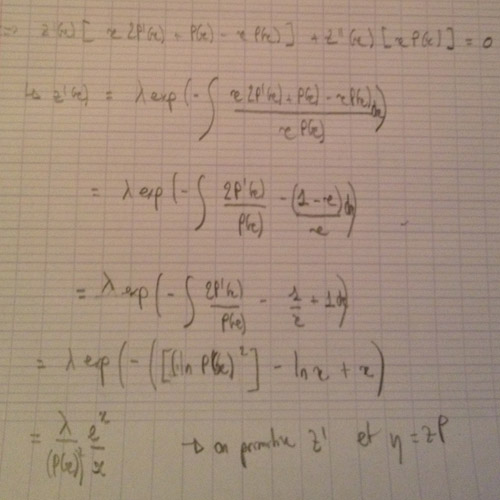 => z'(x) [ x 2P'(x) + P(x) - x P(x) ] + z''(x) [ x P(x) ] = 0
↳ z'(x) = λ exp ( - ∫ (x 2P'(x) + P(x) - x P(x)) / (x P(x)) dx )
= λ exp ( - ∫ 2P'(x) / P(x) - (1 - x) / x dx )
= λ exp ( - ∫ 2P'(x) / P(x) - 1/x + 1 dx )
= λ exp ( - ( [ (ln P(x))² ] - ln x + x )
= λ / (P(x))² e^x / x → on primitive z' et y = zP